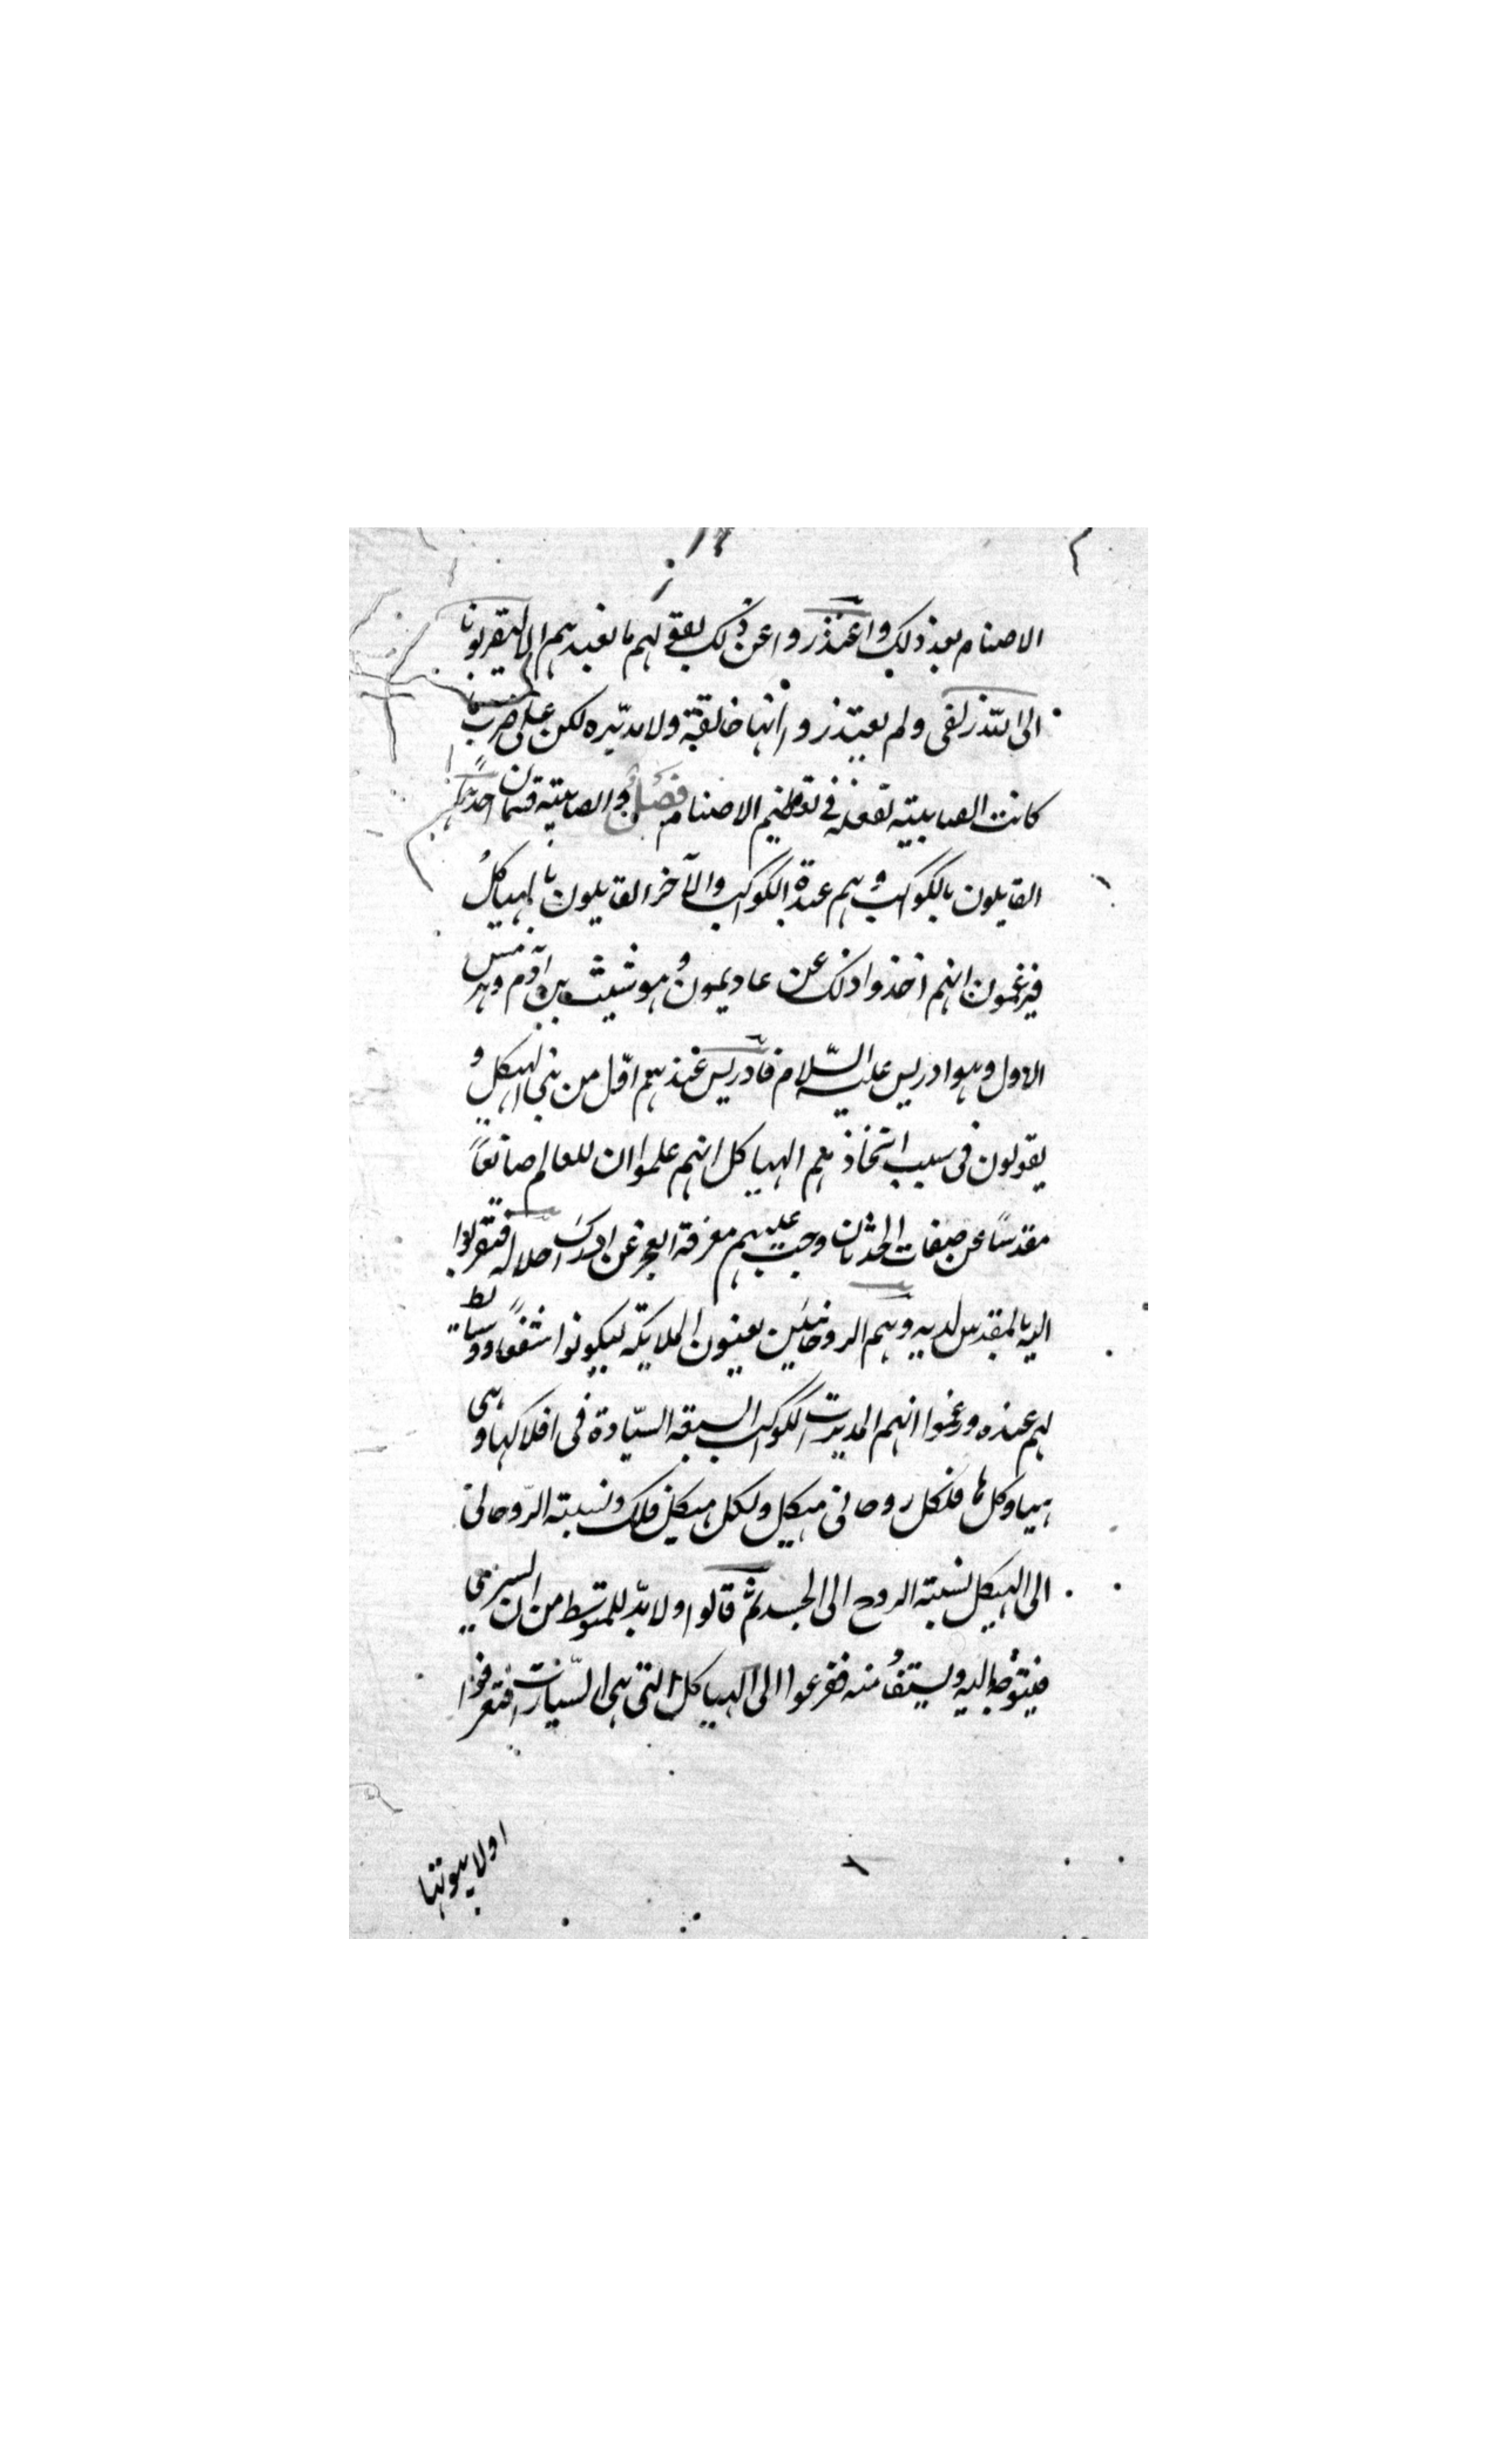 الاصنام بعد ذلك واعتذروا عن ذلك بقولهم ما نعبدهم الا ليقربونا
الى الله زلفى ولم يعتذروا انها خالقة ولا مدبّره لكن على ضرب مما
كانت الصابيته تفعله فى تعظيم الاصنام فصل والصابيته قسمان احدهما
القايلون بالكواكب وهم عبدة الكواكب والآخر القايلون بالهياكل
فيزعمون انهم اخذوا ذلك عن عاديمون وهو شيث بن آدم وهرمس
الاول وهو ادريس عليه السّلام فادريس عندهم اوّل من بنى الهيكل و
يقولون فى سبب اتخاذهم الهياكل انهم علموا ان للعالم صانعاً
مقدساً عن صفات الحدثان وجب عليهم معرفة العجز عن ادراك اجلاله فتقربوا
اليه بالمقدس لديه وهم الروحانيين يعنون الملايكه ليكونوا شفعاً ووسايط
لهم عنده وزعموا انهم المدبرت الكواكب السبعه السيّارة فى افلاكها وهى
هياوكل ها فلكل روحانى هيكل ولكل هيكل فلك ونسبته الرّوحانى
الى الهيكل نسبته الروح الى الجسد ثم قالوا ولا بدّ للمتوسط من ان السير يرى
فيتوجه اليه ويستفا منه ففزعوا الى الهياكل التى هى السّيارت فتعرفوا
اولا بيوتها